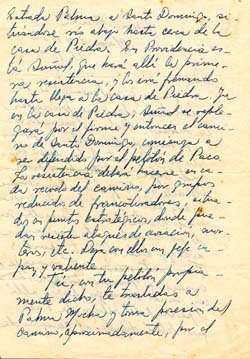 Estrada Palma a Santo Domingo, si-
tuándose río abajo hasta cerca de la
casa de Piedra. En Providencia es-
tá Suñol, que hará allí la prime-
ra resistencia, y los irá frenando
hasta llegar a la casa de Piedra. Ya
en la casa de Piedra, Suñol se reple-
gará por el firme y entonces el cami-
no de Santo Domingo, comienza a
ser defendido por el pelotón de Paco.
La resistencia deberá hacerse en ca-
da recodo del camino, por grupos
reducidos de francotiradores, situa-
dos en puntos estratégicos, donde pue-
dan resistir ataques de aviación, mor-
teros, etc. Deja con ellos un jefe ca-
paz y valiente.
Tú, con tu pelotón propia-
mente dicho, te trasladas a
Palma Mocha y toma posesión del
camino, aproximadamente, por el